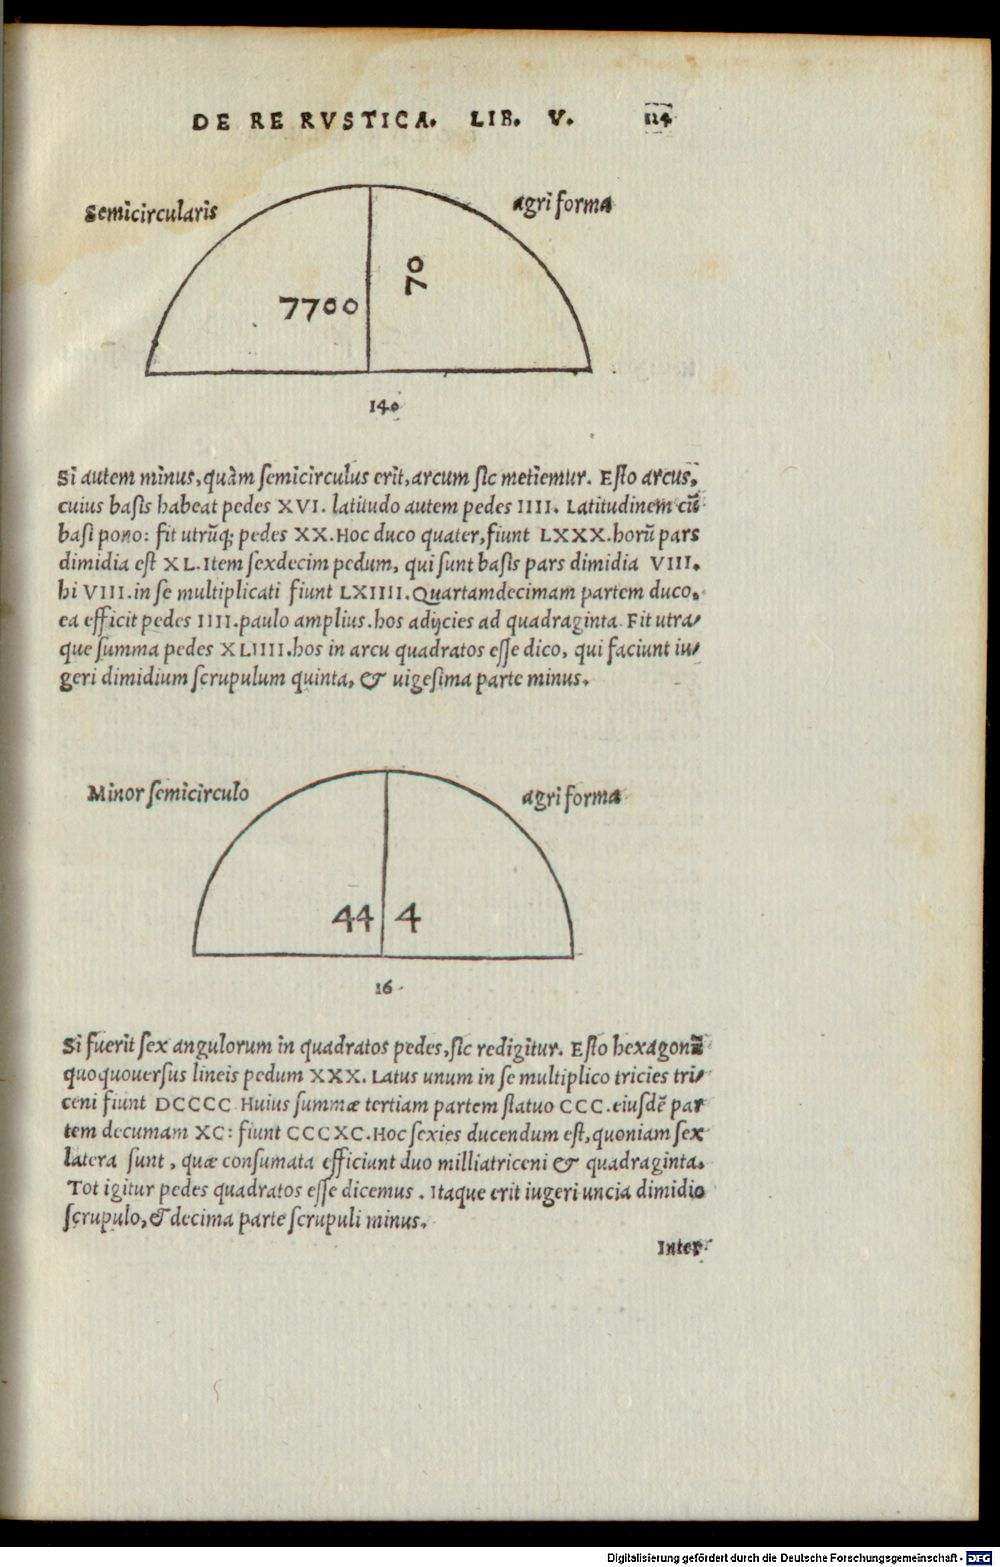 DE RE RVSTICA. LIB. V. 114
Semicircularis agri forma
7700 70
140
Si autem minus, quàm ſemicirculus erit, arcum ſic metiemur. Eſto arcus,
cuius baſis habeat pedes XVI. latitudo autem pedes IIII. Latitudinem cū
baſi pono: fit utrūq; pedes XX. Hoc duco quater, fiunt LXXX. horū pars
dimidia eſt XL. Item ſexdecim pedum, qui ſunt baſis pars dimidia VIII.
hi VIII. in ſe multiplicati fiunt LXIIII. Quartamdecimam partem duco,
ea efficit pedes IIII. paulo amplius. hos adijcies ad quadraginta. Fit utra/
que ſumma pedes XLIIII. hos in arcu quadratos eſſe dico, qui faciunt iu/
geri dimidium ſcrupulum quinta, & uigeſima parte minus.
Minor ſemicirculo agri forma
44 4
16
Si fuerit ſex angulorum in quadratos pedes, ſic redigitur. Eſto hexagonū
quoquouerſus lineis pedum XXX. Latus unum in ſe multiplico tricies tri/
ceni fiunt DCCCC Huius ſummæ tertiam partem ſtatuo CCC. eiuſdē par
tem decumam XC: fiunt CCCXC. Hoc ſexies ducendum eſt, quoniam ſex
latera ſunt, quæ conſumata efficiunt duo milliatriceni & quadraginta.
Tot igitur pedes quadratos eſſe dicemus. Itaque erit iugeri uncia dimidio
ſcrupulo, & decima parte ſcrupuli minus.
Inter
Digitalisierung gefördert durch die Deutsche Forschungsgemeinschaft - DFG